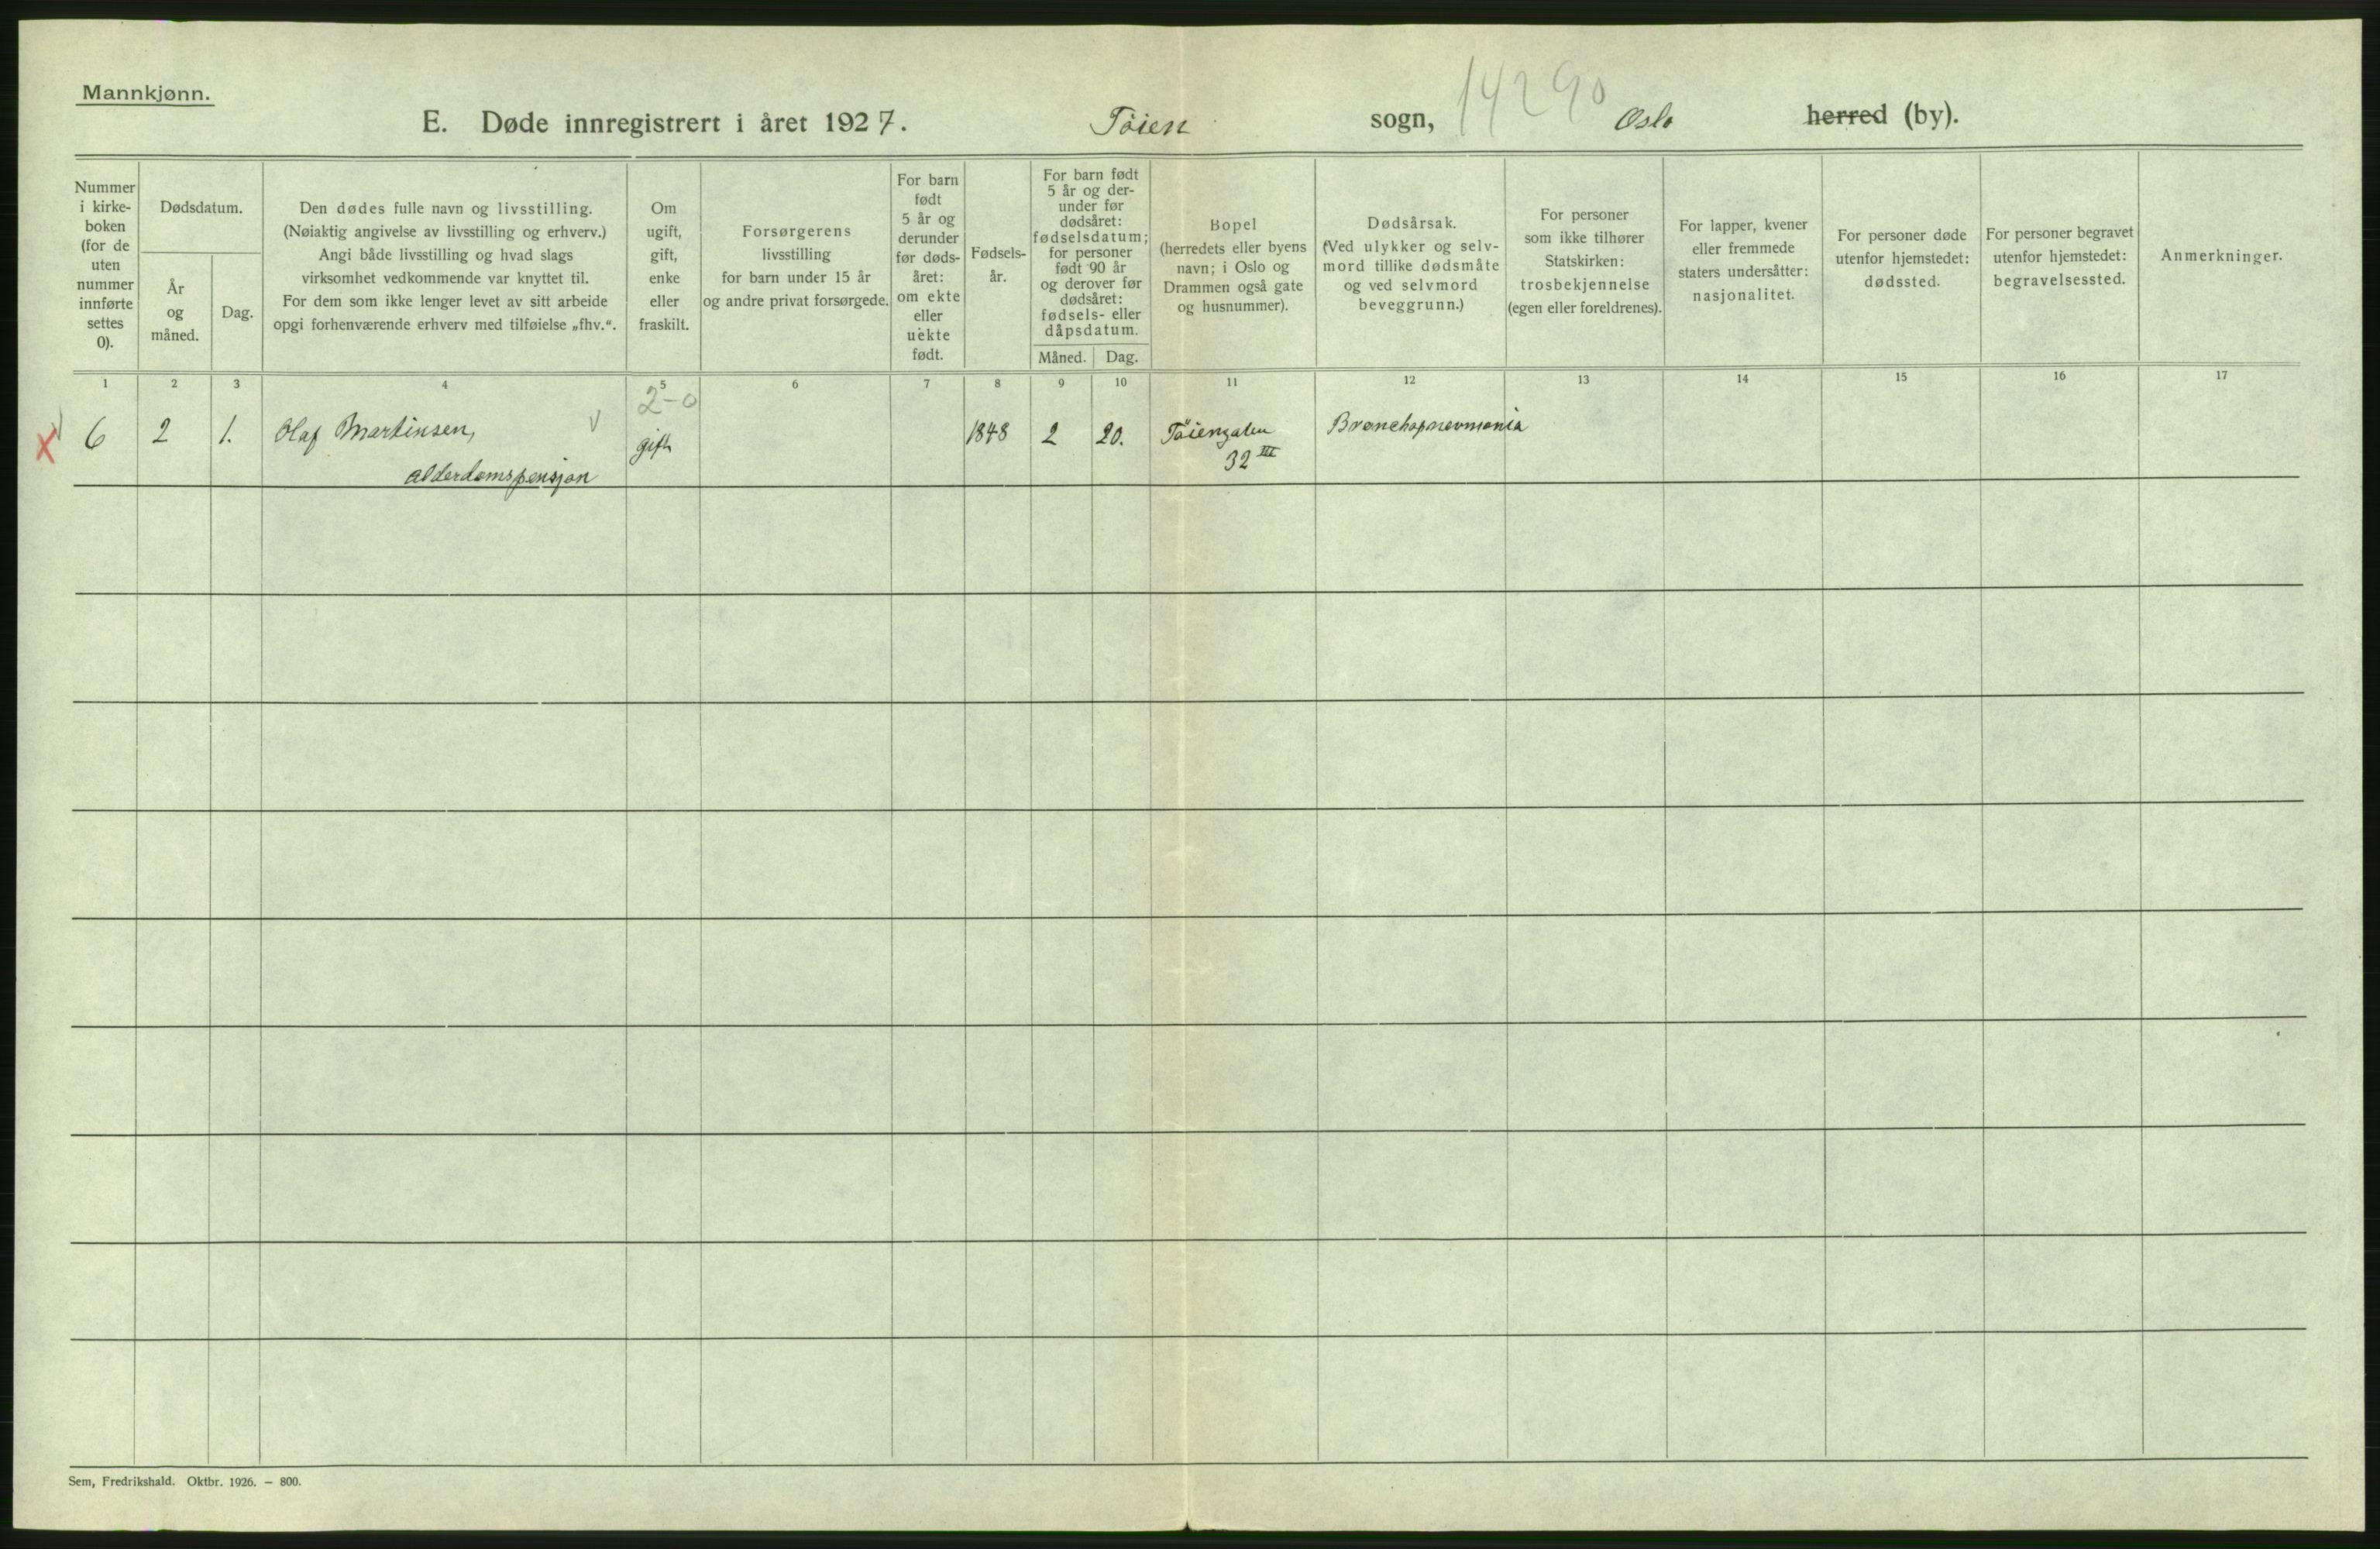 Mannkjønn.
E. Døde innregistrert i året 1927. Töien sogn, 14290 Oslo herred (by).
Nummer
i kirke-
boken
(for de
uten
nummer
innførte
settes
0).
Dødsdatum.
År
og
måned.
Dag.
Den dødes fulle navn og livsstilling.
(Nøiaktig angivelse av livsstilling og erhverv.)
Angi både livsstilling og hvad slags
virksomhet vedkommende var knyttet til.
For dem som ikke lenger levet av sitt arbeide
opgi forhenværende erhverv med tilføielse „fhv.“.
Om
ugift,
gift,
enke
eller
fraskilt.
Forsørgerens
livsstilling
for barn under 15 år
og andre privat forsørgede.
For barn
født
5 år og
derunder
før døds-
året:
om ekte
eller
uekte
født.
Fødsels-
år.
For barn født
5 år og der-
under før
dødsåret:
fødselsdatum;
for personer
født 90 år
og derover før
dødsåret:
fødsels- eller
dåpsdatum.
Måned. Dag.
Bopel
(herredets eller byens
navn; i Oslo og
Drammen også gate
og husnummer).
Dødsårsak.
(Ved ulykker og selv-
mord tillike dødsmåte
og ved selvmord
beveggrunn.)
For personer
som ikke tilhører
Statskirken:
trosbekjennelse
(egen eller foreldrenes).
For lapper, kvener
eller fremmede
staters undersåtter:
nasjonalitet.
For personer døde
utenfor hjemstedet:
dødssted.
For personer begravet
utenfor hjemstedet:
begravelsessted.
Anmerkninger.
1 2 3 4 5 6 7 8 9 10 11 12 13 14 15 16 17
2-0
X 6 2 1. Olaf Martinsen, gift 1848 2 20. Töiengaten Bronchopnevmonia
32 III
alderdomspensjon
Sem, Fredrikshald. Oktbr. 1926. — 800.